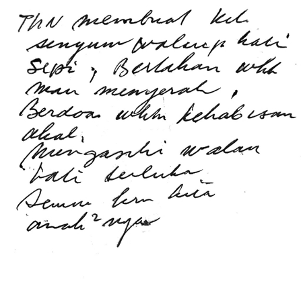 Thn membuat kt
senyum walaup hati
sepi, Bertahan wkt
mau menyerah,
Berdoa wktu kehabisan
akal,
Mengasihi walau
hati terluka
Semua krn kita
anak²nya